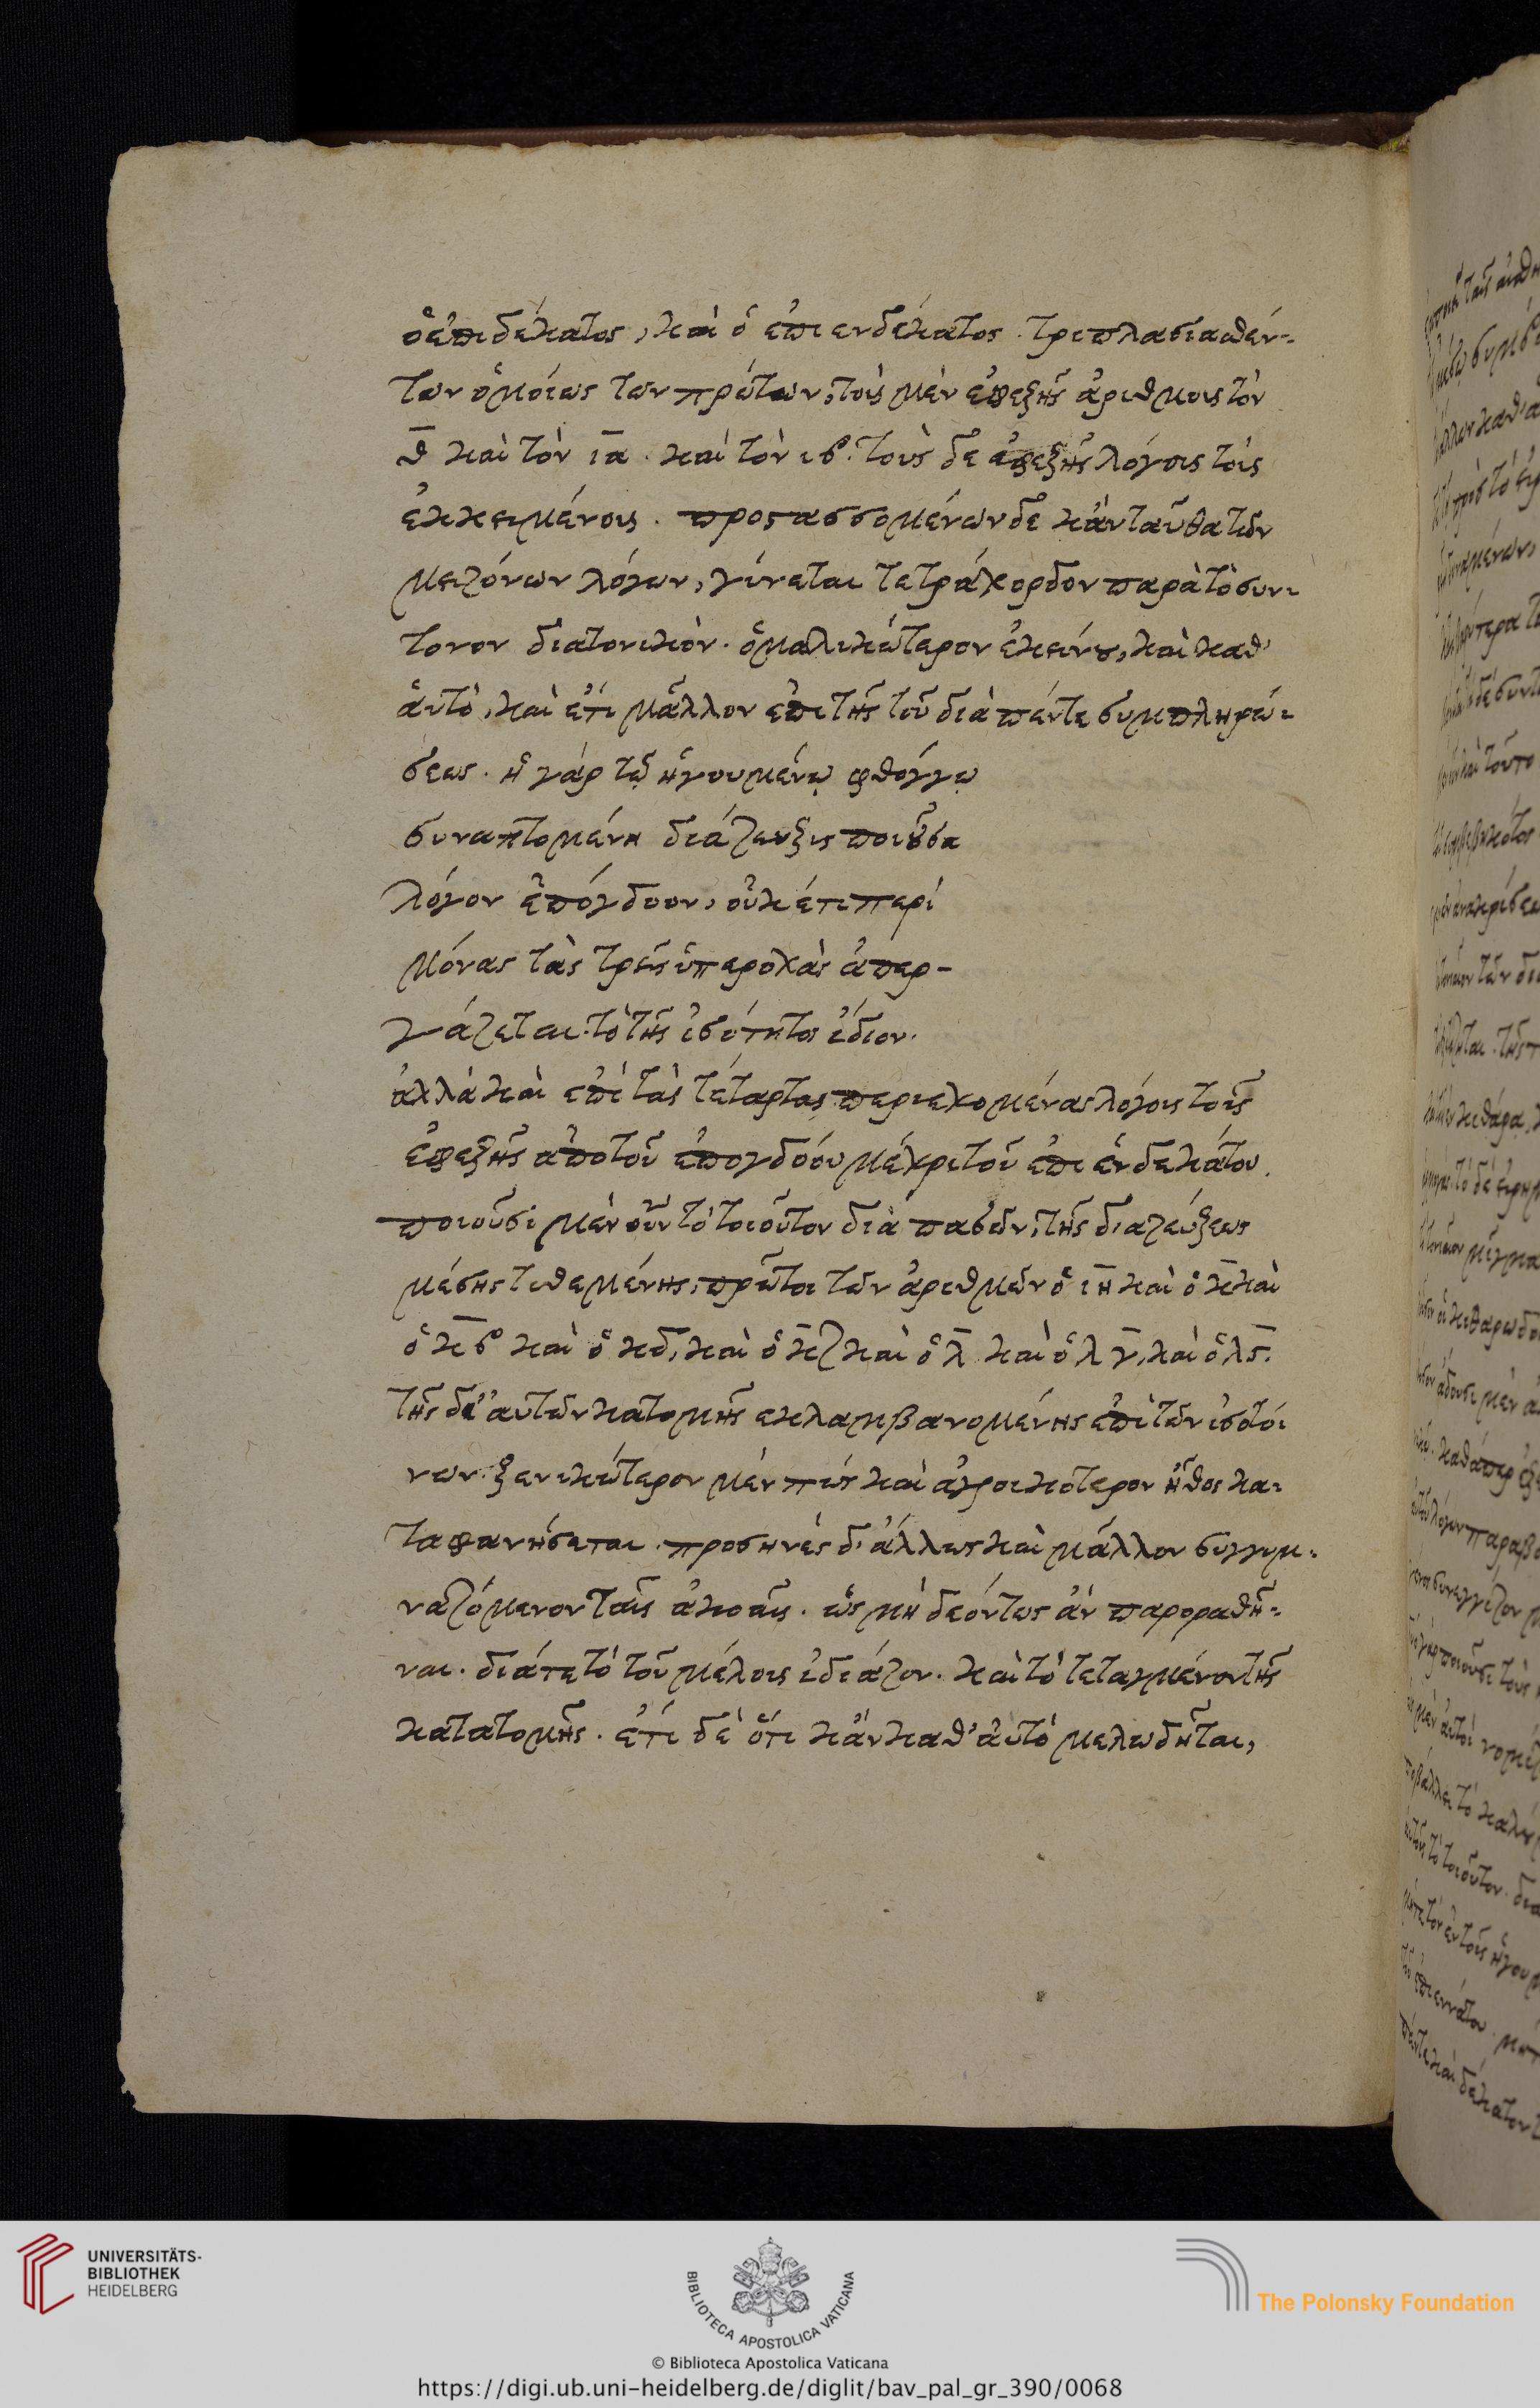 ὁ ἐπιδέκατος, καὶ ὁ ἐπιενδέκατος. τριπλασιασθέν-
των ὁμοίως των πρώτων, τοὺς μὲν ἐφεξῆς ἀριθμοὺς τὸν
θ̅ καὶ τὸν ια̅. καὶ τὸν ιβ. τοὺς δὲ ἐφεξῆς λόγοις τοῖς
ἐκκειμένοις. προστασσομένων δὲ κἀνταῦθα τῶν
μειζόνων λόγων, γίνεται τετράχορδον παρὰ τὸ σύν-
τονον διατονικὸν. ὁμαλικώτερον ἐκείνου, καὶ καθ'
ἁυτὸ, καὶ ἔτι μᾶλλον ἐπὶ τῆς τοῦ διὰ πέντε συμπληρώ-
σεως. ἡ γάρ τῷ ἡγουμένῳ φθόγγῳ
συναπτομένη διάζευξις ποιοῦσα
λόγον ἐπόγδοον, οὐκέτι περὶ
μόνας τὰς τρεῖς ὑπεροχὰς ἀπερ-
γάζεται. τὸ τῆς ἰσότητος ἴδιον.
ἀλλὰ καὶ ἐπὶ τὰς τέταρτας περιεχομένας λόγοις τοῖς
ἐφεξῆς ἀπὸ τοῦ ἐπογδόου μέχρι τοῦ ἐπιενδεκάτου.
ποιοῦσι μὲν οὖν τὸ τοιοῦτον διὰ πασῶν, τῆς διαζεύξεως
μέσης τιθεμένης, πρῶτοι τῶν ἀριθμῶν ὁ ιη̅ καὶ ὁ κ̅ καὶ
ὁ κ̅β καὶ ὁ κδ̅, καὶ ὁ κ̅ζ καὶ ὁ λ̅ καὶ ὁ λγ̅, καὶ ὁ λς̅.
τῆς δὲ αὐτῶν κατομῆς εκλαμβανομένης ἐπὶ τῶν ἰσοτό-
νων. ξενικώτερον μέν πως καὶ ἀγροικότερον ἦθος κα-
ταφανήσεται. προσηνὲς δ' ἄλλως καὶ μάλλον συγγυμ-
ναζόμενον ταῖς ἀκοαῖς. ὡς μὴ δεόντως ἀν παροραθῆ-
ναι. διά τε τὸ τοῦ μέλους ἰδιάζον. καὶ τὸ τεταγμένον τῆς
κατατομῆς. ἔτι δὲ ὅτι κἂν καθ' ἁυτὸ μελωδῆται,
UNIVERSITÄTS-
BIBLIOTHEK
HEIDELBERG
BIBLIOTECA APOSTOLICA VATICANA
© Biblioteca Apostolica Vaticana
The Polonsky Foundation
https://digi.ub.uni-heidelberg.de/diglit/bav_pal_gr_390/0068